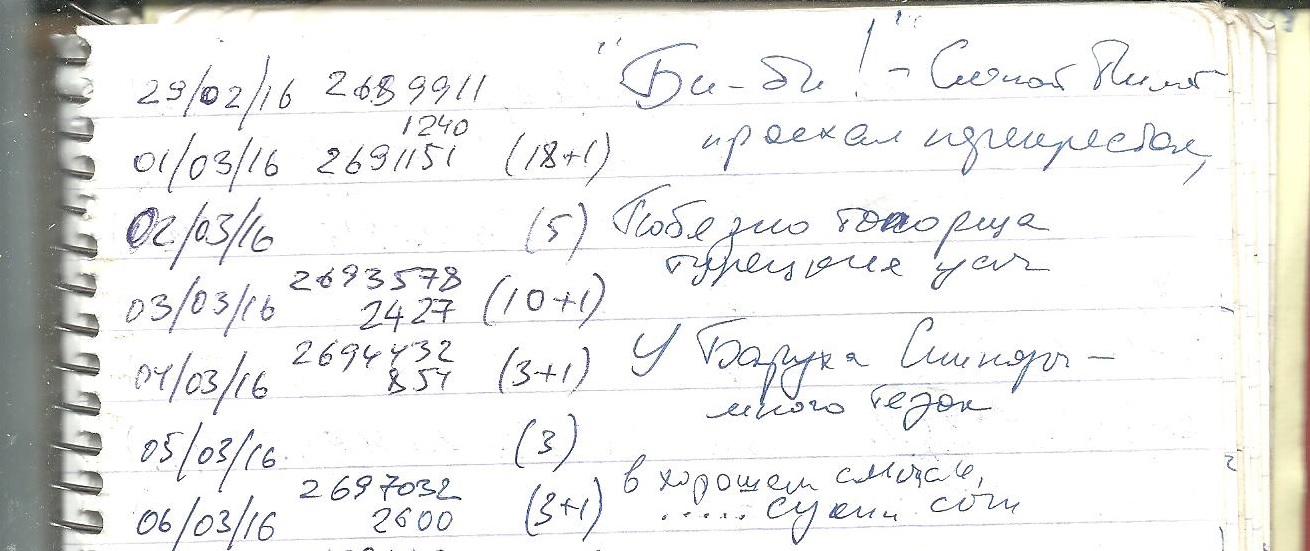 29/02/16 2689911 "Би-би!" – Слепой Пилот
1240 проехал перекресток,
01/03/16 2691151 (18+1)
02/03/16 (5) Победно топорща
турецкие усы
03/03/16 2693578 (10+1)
2427
04/03/16 2694432 (3+1) У Баруха Спинозы –
854 много тезок
05/03/16 (3)
в хорошем смысле,
06/03/16 2697032 (3+1) ..... сукин сын
2600